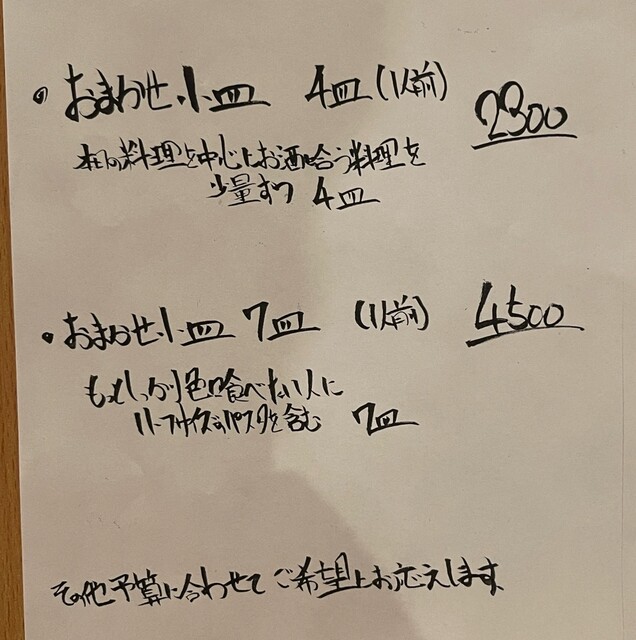 • おまかせ小皿 4皿 (1人前) 2300
本日の料理を中心にお酒に合う料理を
少量ずつ 4皿
• おまかせ小皿 7皿 (1人前) 4500
もっとしっかり色々食べたい人に
ハーフサイズのパスタを含む 7皿
その他予算に合わせてご希望にお応えします